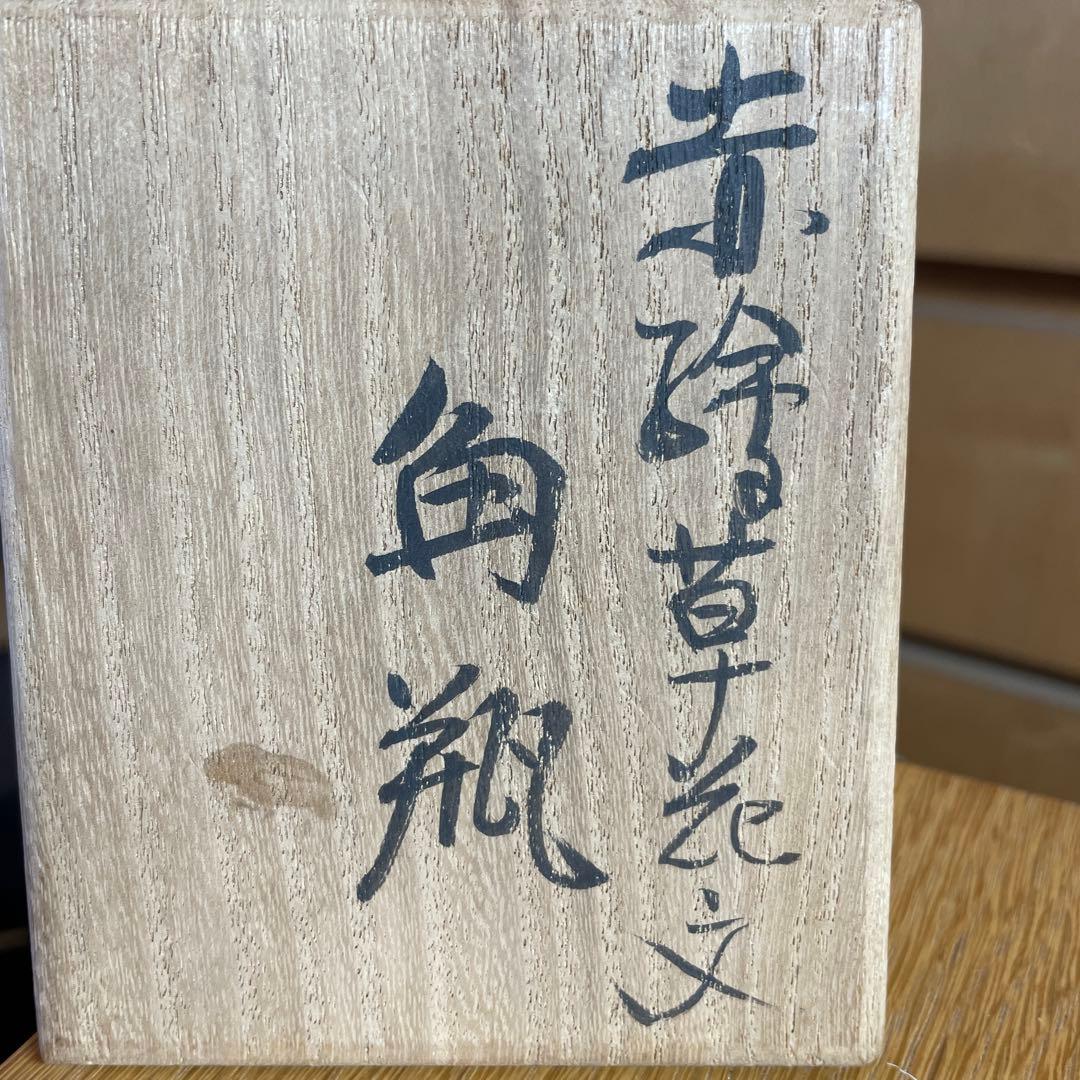 赤繪草花文
角瓶